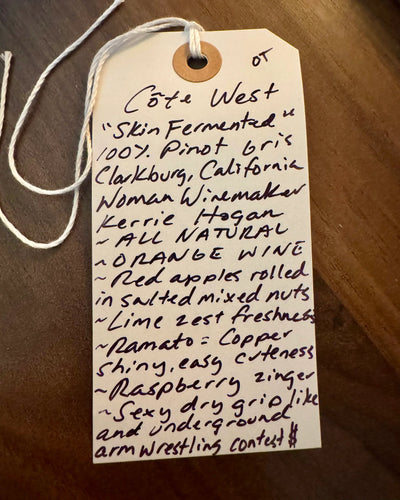 OT
Côte West
"Skin Fermented"
100% Pinot Gris
Clarkburg, California
Woman Winemaker
Kerrie Hogan
~ ALL NATURAL
~ ORANGE WINE
~ Red apples rolled
in salted mixed nuts
~ Lime zest freshness
~ Ramato = Copper
shiny, easy cuteness
~ Raspberry zinger
~ Sexy dry grip, like
and underground
arm wrestling contest $